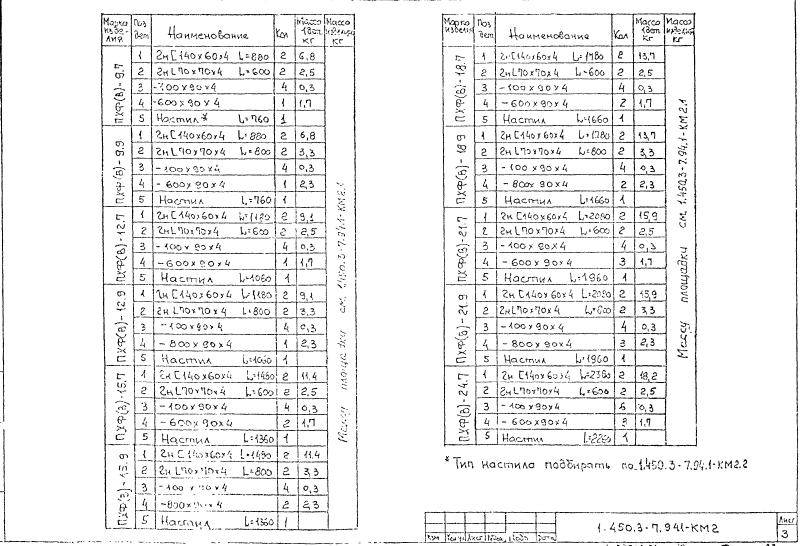 Марка изделия Поз дет Наименование Кол Масса 1дет. кг Масса изделия кг
ПХФ(В)-9.7
1 2н[140х60х4 L=880 2 6,8
2 2нL70х70х4 L=600 2 2,5
3 -100х90х4 4 0,3
4 -600х90х4 1 1,7
5 Настил* L=760 1
ПХФ(В)-9.9
1 2н[140х60х4 L=880 2 6,8
2 2нL70х70х4 L=800 2 3,3
3 -100х90х4 4 0,3
4 -600х90х4 1 2,3
5 Настил L=760 1
ПХФ(В)-12.7
1 2н[140х60х4 L=1180 2 9,1
2 2нL70х70х4 L=600 2 2,5
3 -100х90х4 4 0,3
4 -600х90х4 1 1,7
5 Настил L=1060 1
ПХФ(В)-12.9
1 2н[140х60х4 L=1180 2 9,1
2 2нL70х70х4 L=800 2 3,3
3 -100х90х4 4 0,3
4 -800х90х4 1 2,3
5 Настил L=1060 1
ПХФ(В)-15.7
1 2н[140х60х4 L=1480 2 11.4
2 2нL70х70х4 L=600 2 2,5
3 -100х90х4 4 0,3
4 -600х90х4 2 1,7
5 Настил L=1360 1
ПХФ(В)-15.9
1 2н[140х60х4 L=1490 2 11.4
2 2нL70х70х4 L=800 2 3,3
3 -100х90х4 4 0,3
4 -800х90х4 2 2,3
5 Настил L=1360 1
Массу площадки см. 1.450.3-7.94.1-КМ2.1
Марка изделия Поз дет Наименование Кол Масса 1дет кг Масса изделия кг
ПХФ(В)-18.7
1 2н[140х60х4 L=1780 2 13,7
2 2нL70х70х4 L=600 2 2,5
3 -100х90х4 4 0,3
4 -600х90х4 2 1,7
5 Настил L=1660 1
ПХФ(В)-18.9
1 2н[140х60х4 L=1780 2 13,7
2 2нL70х70х4 L=800 2 3,3
3 -100х90х4 4 0,3
4 -800х90х4 2 2,3
5 Настил L=1660 1
ПХФ(В)-21.7
1 2н[140х60х4 L=2080 2 15,9
2 2нL70х70х4 L=600 2 2,5
3 -100х90х4 4 0,3
4 -600х90х4 3 1,7
5 Настил L=1960 1
ПХФ(В)-21.9
1 2н[140х60х4 L=2080 2 15,9
2 2нL70х70х4 2 3,3
3 -100х90х4 4 0,3
4 -800х90х4 3 2,3
5 Настил L=1960 1
ПХФ(В)-24.7
1 2н[140х60х4 L=2380 2 18,2
2 2нL70х70х4 L=600 2 2,5
3 -100х90х4 6 0,3
4 -600х90х4 3 1,7
5 Настил L=2260 1
Массу площадки см. 1.450.3-7.94.1-КМ2.1
* Тип настила подбирать по 1.450.3-7.94.1-КМ2.2
1.450.3-7.94.1-КМ2
Лист
3
Лист
Дата